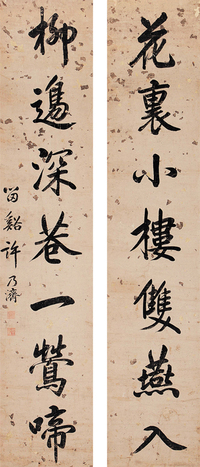 花裏小樓雙燕入
柳邊深巷一鶯啼
許乃濟